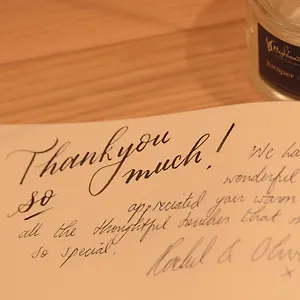 Thank you
so much! We ha
wonderful
appreciated your warm
all the thoughtful touches that m
so special.
Rachel & Oliv
x